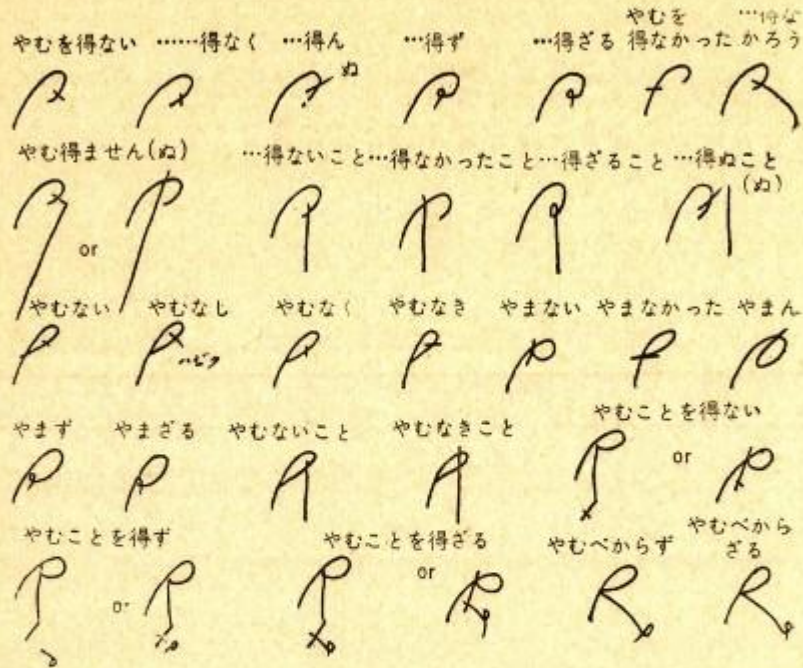 やむを得ない ……得なく …得ん …得ず …得ざる やむを得なかった …得なかろう
ぬ
やむ得ません(ぬ) …得ないこと …得なかったこと …得ざること …得ぬこと(ぬ)
or
やむない やむなし やむなく やむなき やまない やまなかった やまん
ハビク
やまず やまざる やむないこと やむなきこと やむことを得ない
or
やむことを得ず やむことを得ざる やむべからず やむべからざる
or or